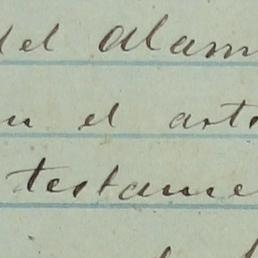 del alam
en el arti
testame